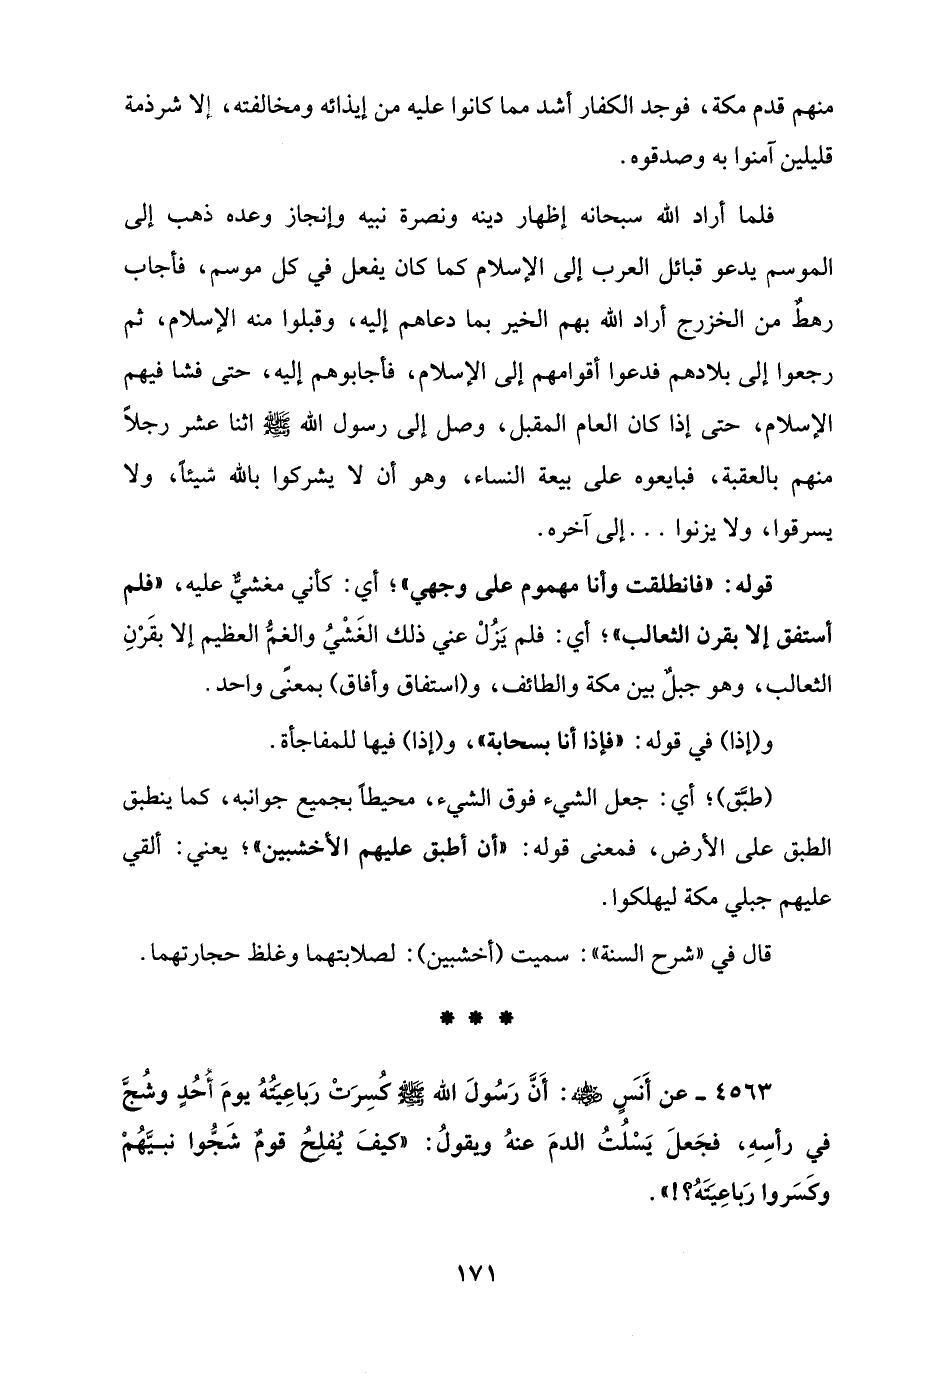 منهم قدم مكة، فوجد الكفار أشد مما كانوا عليه من إيذائه ومخالفته، إلا شرذمة
قليلين آمنوا به وصدقوه.
فلما أراد الله سبحانه إظهار دينه ونصرة نبيه وإنجاز وعده ذهب إلى
الموسم يدعو قبائل العرب إلى الإسلام كما كان يفعل في كل موسم، فأجاب
رهطٌ من الخزرج أراد الله بهم الخير بما دعاهم إليه، وقبلوا منه الإسلام، ثم
رجعوا إلى بلادهم فدعوا أقوامهم إلى الإسلام، فأجابوهم إليه، حتى فشا فيهم
الإسلام، حتى إذا كان العام المقبل، وصل إلى رسول الله ﷺ اثنا عشر رجلاً
منهم بالعقبة، فبايعوه على بيعة النساء، وهو أن لا يشركوا بالله شيئاً، ولا
يسرقوا، ولا يزنوا ... إلى آخره.
قوله: «فانطلقت وأنا مهموم على وجهي»؛ أي: كأني مغشيٌّ عليه، «فلم
أستفق إلا بقرن الثعالب»؛ أي: فلم يَزُلْ عني ذلك الغَشْيُ والغمُّ العظيم إلا بقَرْنِ
الثعالب، وهو جبلٌ بين مكة والطائف، و(استفاق وأفاق) بمعنًى واحد.
و(إذا) في قوله: «فإذا أنا بسحابة»، و(إذا) فيها للمفاجأة.
(طبَّق)؛ أي: جعل الشيء فوق الشيء، محيطاً بجميع جوانبه، كما ينطبق
الطبق على الأرض، فمعنى قوله: «أن أطبق عليهم الأخشبين»؛ يعني: ألقي
عليهم جبلي مكة ليهلكوا.
قال في «شرح السنة»: سميت (أخشبين): لصلابتهما وغلظ حجارتهما.
* * *
٤٥٦٣ ـ عن أَنَسٍ ﷺ: أَنَّ رَسُولَ الله ﷺ كُسِرَتْ رَباعِيَتُهُ يومَ أُحُدٍ وشُجَّ
في رأسِهِ، فجَعلَ يَسْلُتُ الدمَ عنهُ ويقولُ: «كيفَ يُفلِحُ قومٌ شَجُّوا نبيَّهُمْ
وكَسَروا رَباعِيَتَهُ؟!».
١٧١